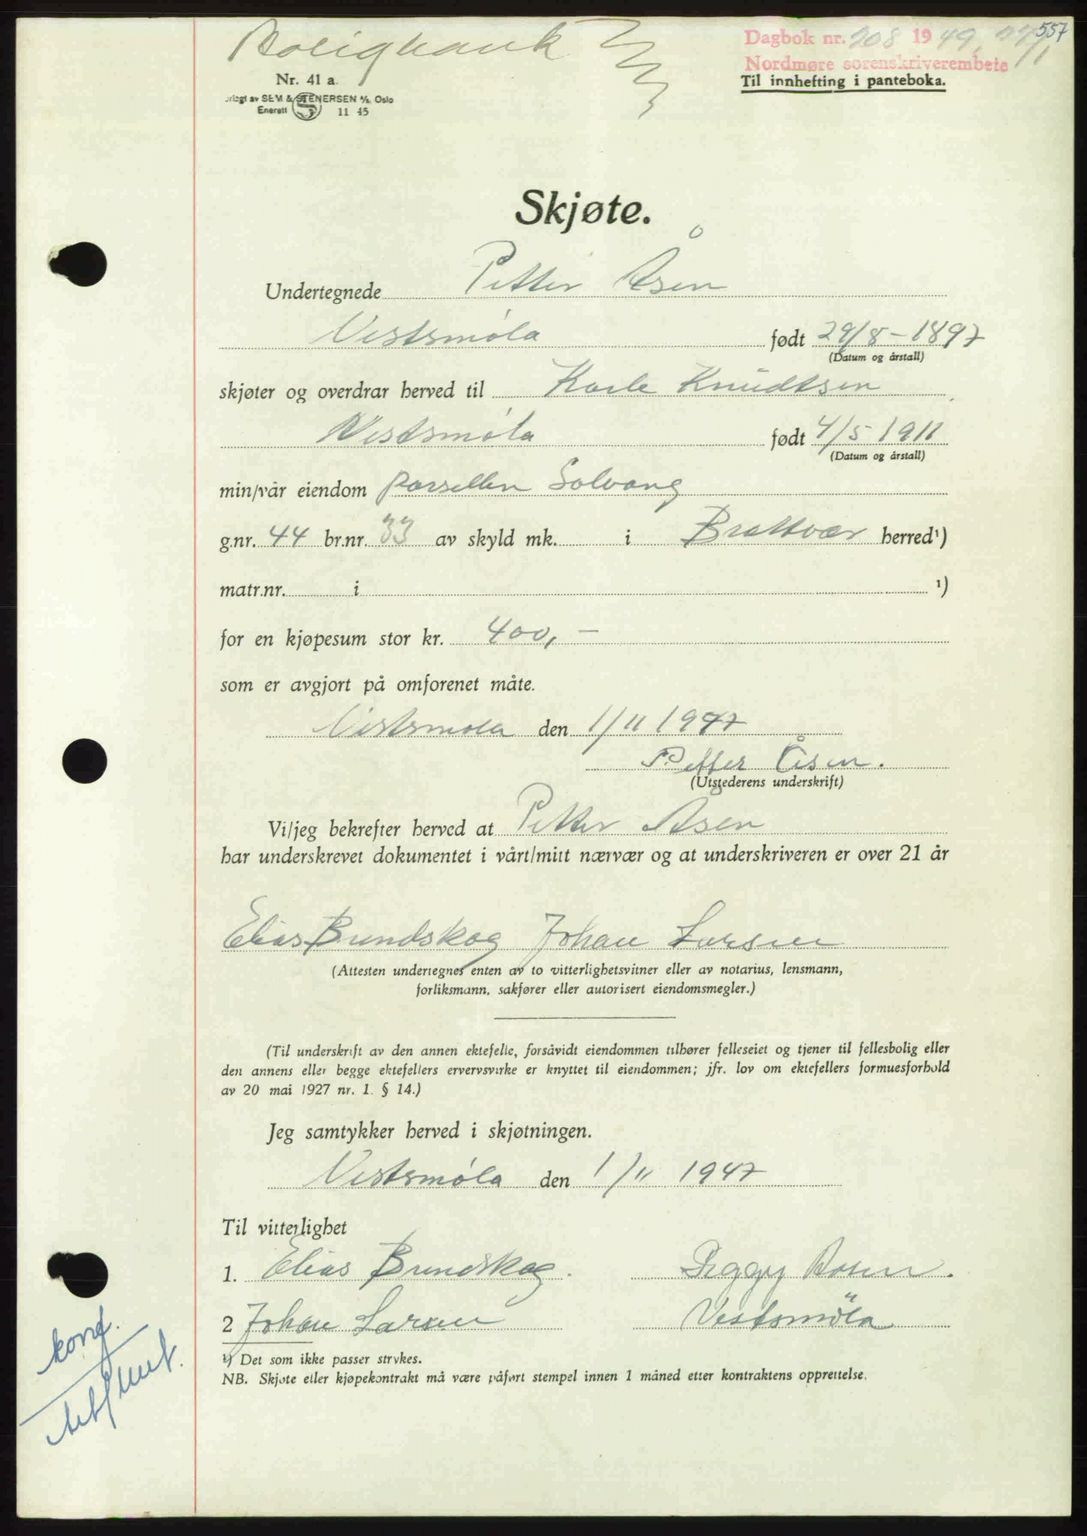 Boligbank
Dagbok nr. 208 1949, 22/1
557
Nordmøre sorenskriverembete
Til innhefting i panteboka.
Nr. 41 a.
SEM & STENERSEN A/S, Oslo
Enerett S 11 45
Skjøte.
Undertegnede Petter Åsen
Vestsmøla født 29/8-1897
(Datum og årstall)
skjøter og overdrar herved til Kaale Knudtsen
Vestsmøla født 4/5 1911
(Datum og årstall)
min/vår eiendom parsellen Solvang
g.nr. 44 br.nr. 33 av skyld mk. i Brattvær herred¹)
matr.nr. i ¹)
for en kjøpesum stor kr. 400,-
som er avgjort på omforenet måte.
Vestsmøla den 1/11 1947
Petter Åsen.
(Utstederens underskrift)
Vi/jeg bekrefter herved at Petter Åsen
har underskrevet dokumentet i vårt/mitt nærvær og at underskriveren er over 21 år
Elias Bundskog Johan Larsen
(Attesten undertegnes enten av to vitterlighetsvitner eller av notarius, lensmann,
forliksmann, sakfører eller autorisert eiendomsmegler.)
(Til underskrift av den annen ektefelle, forsåvidt eiendommen tilhører felleseiet og tjener til fellesbolig eller
den annens eller begge ektefellers ervervsvirke er knyttet til eiendommen; jfr. lov om ektefellers formuesforhold
av 20 mai 1927 nr. 1. § 14.)
Jeg samtykker herved i skjøtningen.
Vestsmøla den 1/11 1947
Til vitterlighet
1. Elias Bundskog. Peggy Åsen.
2 Johan Larsen Vestsmøla
¹) Det som ikke passer strykes.
NB. Skjøte eller kjøpekontrakt må være påført stempel innen 1 måned etter kontraktens opprettelse.
konf.